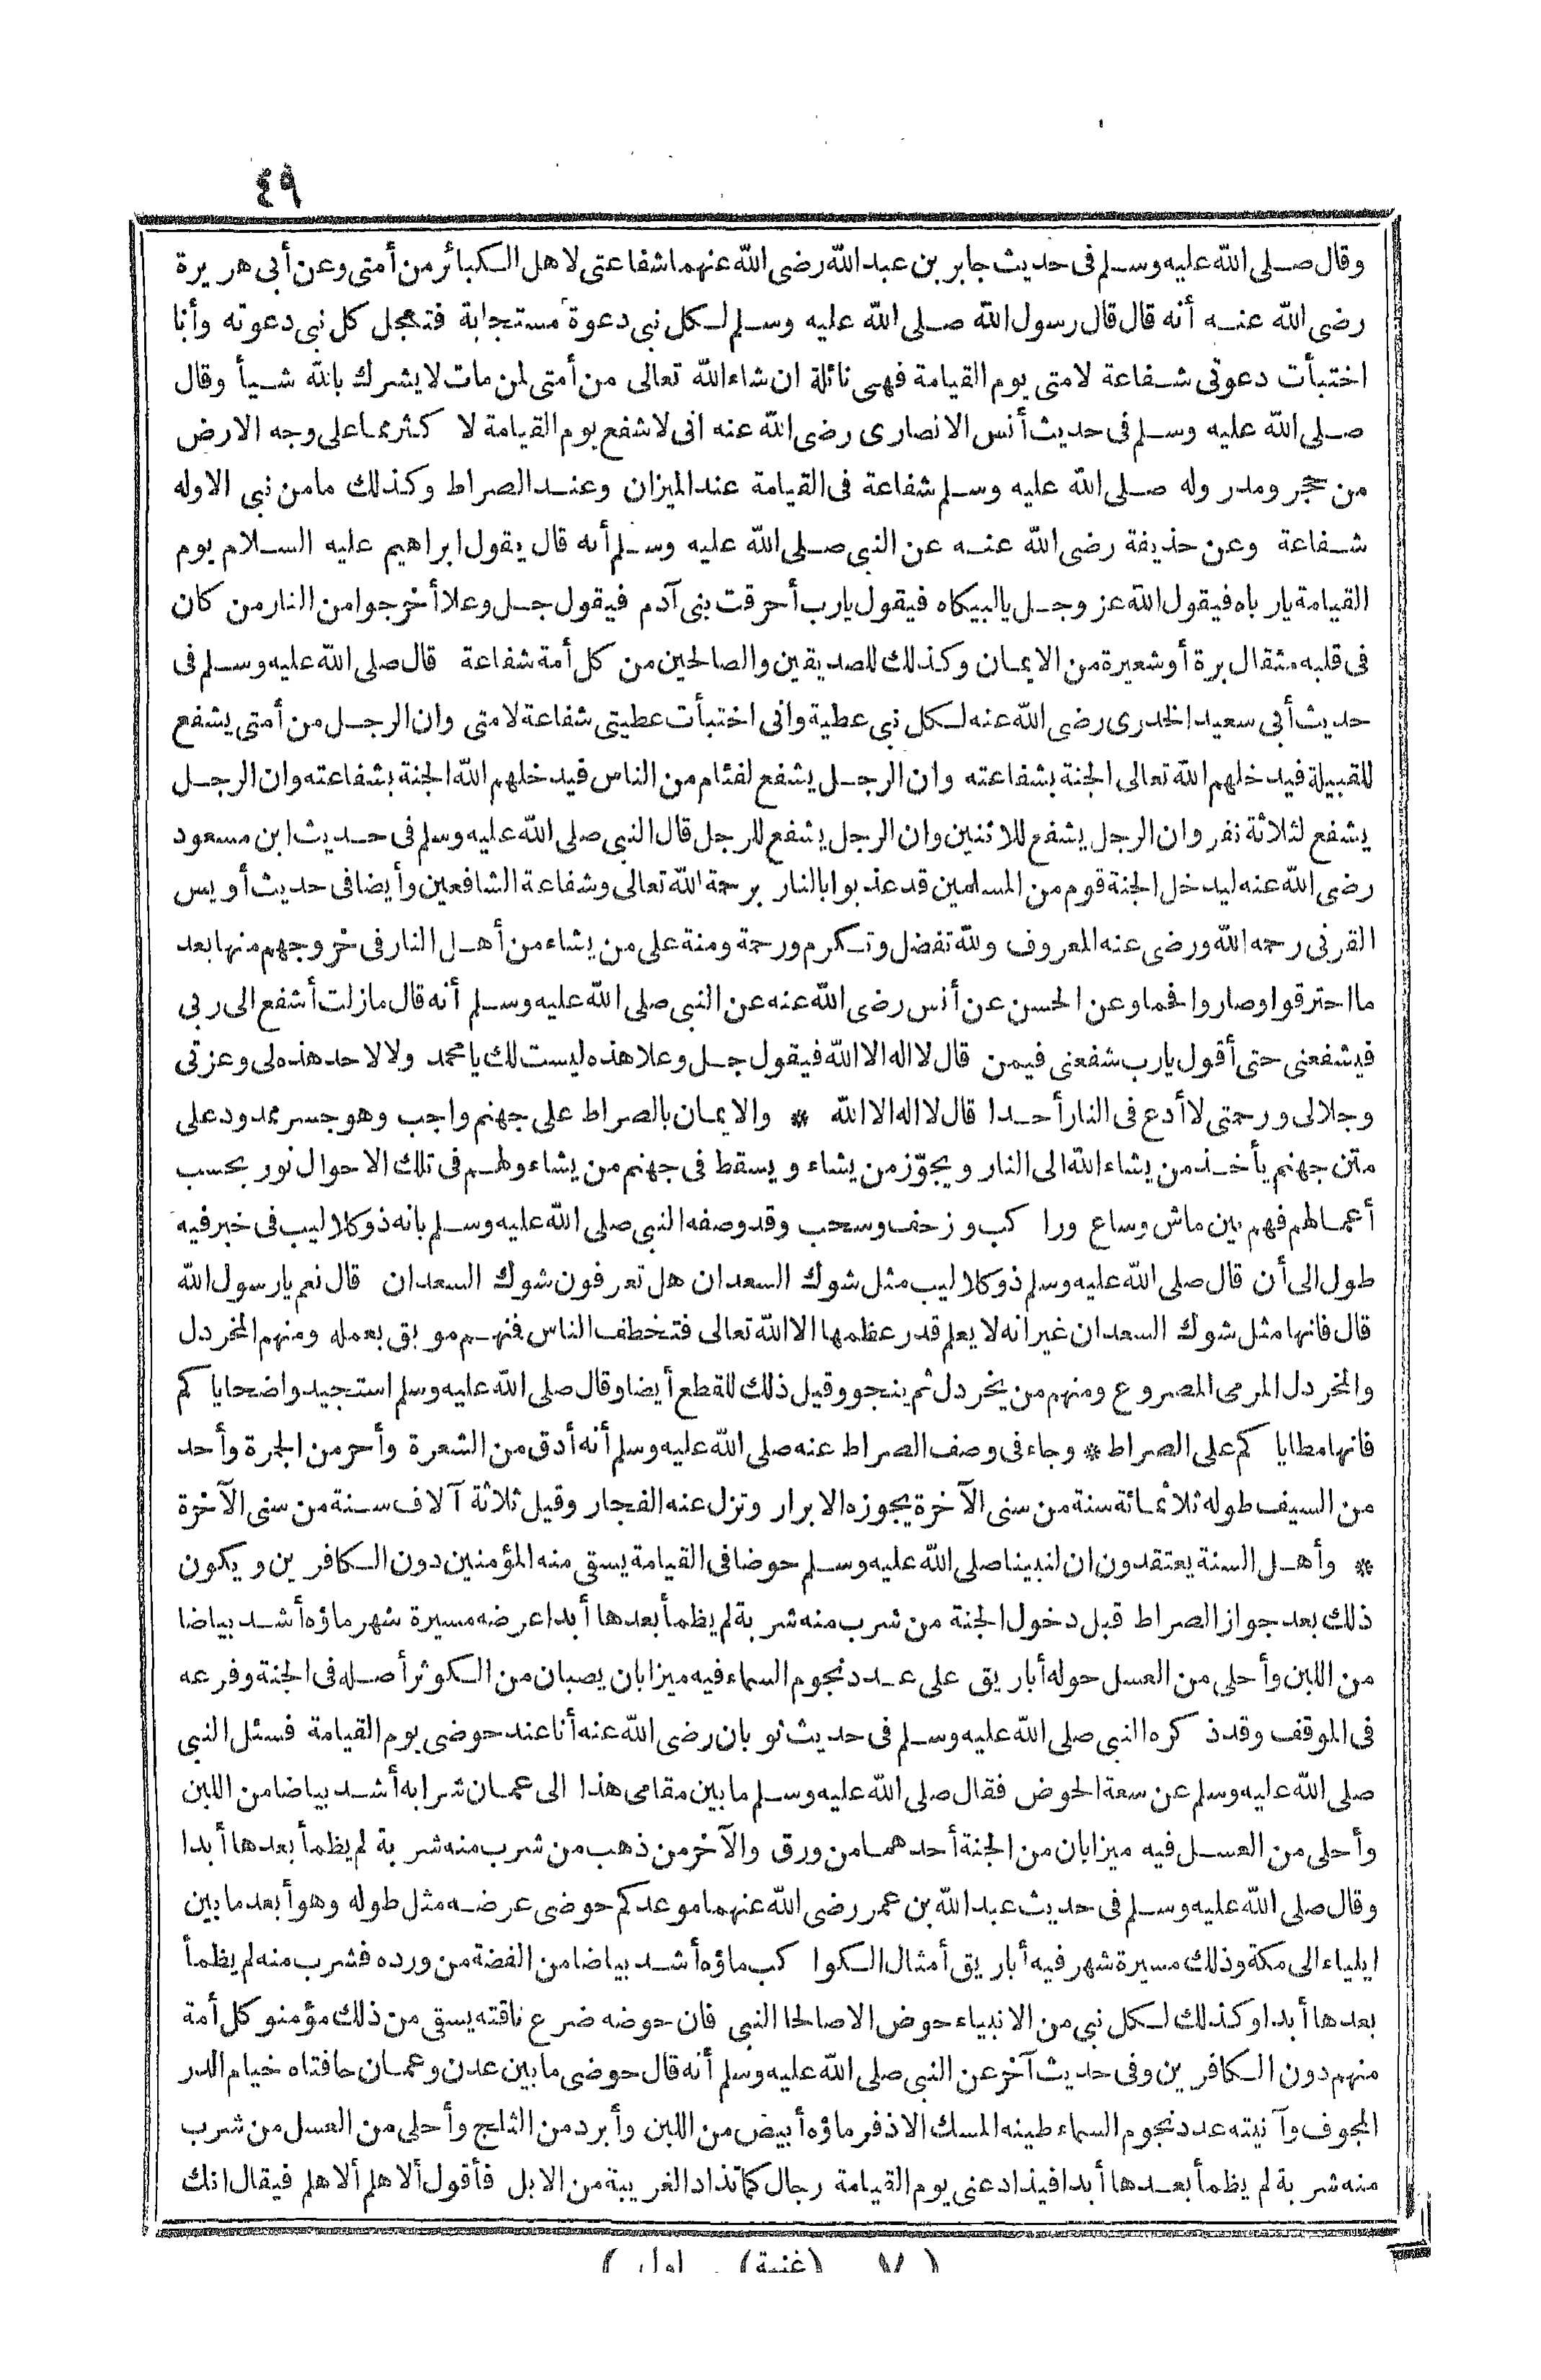 ٤٩
وقال صلى الله عليه وسلم فى حديث جابر بن عبد الله رضى الله عنهما شفاعتى لاهل الكبائر من أمتى وعن أبى هريرة
رضى الله عنه أنه قال قال رسول الله صلى الله عليه وسلم لكل نبى دعوة مستجابة فتعجل كل نبى دعوته وأنا
اختبأت دعوتى شفاعة لامتى يوم القيامة فهى نائلة ان شاء الله تعالى من أمتى لمن مات لا يشرك بالله شيأ وقال
صلى الله عليه وسلم فى حديث أنس الانصارى رضى الله عنه انى لاشفع يوم القيامة لا كثر مما على وجه الارض
من حجر ومدر وله صلى الله عليه وسلم شفاعة فى القيامة عند الميزان وعند الصراط وكذلك مامن نبى الاوله
شفاعة وعن حذيفة رضى الله عنه عن النبى صلى الله عليه وسلم أنه قال يقول ابراهيم عليه السلام يوم
القيامة يارباه فيقول الله عز وجل يالبيكاه فيقول يارب أحرقت بنى آدم فيقول جل وعلا أخرجوا من النار من كان
فى قلبه مثقال برة أو شعيرة من الايمان وكذلك للصديقين والصالحين من كل أمة شفاعة قال صلى الله عليه وسلم فى
حديث أبى سعيد الخدرى رضى الله عنه لكل نبى عطية وانى اختبأت عطيتى شفاعة لامتى وان الرجل من أمتى يشفع
للقبيلة فيدخلهم الله تعالى الجنة بشفاعته وان الرجل يشفع لفئام من الناس فيدخلهم الله الجنة بشفاعته وان الرجل
يشفع لثلاثة نفر وان الرجل يشفع للاثنين وان الرجل يشفع للرجل قال النبى صلى الله عليه وسلم فى حديث ابن مسعود
رضى الله عنه ليدخل الجنة قوم من المسلمين قد عذبوا بالنار برحمة الله تعالى وشفاعة الشافعين وأيضا فى حديث أويس
القرنى رحمه الله ورضى عنه المعروف ولله تفضل وتكرم ورحمة ومنة على من يشاء من أهل النار فى خروجهم منها بعد
ما احترقوا وصاروا فحما وعن الحسن عن أنس رضى الله عنه عن النبى صلى الله عليه وسلم أنه قال مازلت أشفع الى ربى
فيشفعنى حتى أقول يارب شفعنى فيمن قال لا اله الا الله فيقول جل وعلا هذه ليست لك يا محمد ولا لاحد هذه لى وعزتى
وجلالى ورحمتى لا أدع فى النار أحدا قال لا اله الا الله * والايمان بالصراط على جهنم واجب وهو جسر ممدود على
متن جهنم يأخذ من يشاء الله الى النار ويجوّز من يشاء ويسقط فى جهنم من يشاء ولهم فى تلك الاحوال نور بحسب
أعمالهم فهم بين ماش وساع وراكب وزحف وسحب وقد وصفه النبى صلى الله عليه وسلم بانه ذو كلاليب فى خبر فيه
طول الى أن قال صلى الله عليه وسلم ذو كلاليب مثل شوك السعدان هل تعرفون شوك السعدان قال نعم يارسول الله
قال فانها مثل شوك السعدان غير انه لا يعلم قدر عظمها الا الله تعالى فتخطف الناس فنهم موبق بعمله ومنهم المخردل
والمخردل المرمى المصروع ومنهم من يخردل ثم ينجو وقيل ذلك للقطع أيضا وقال صلى الله عليه وسلم استجيدوا ضحاياكم
فانها مطاياكم على الصراط * وجاء فى وصف الصراط عنه صلى الله عليه وسلم أنه أدق من الشعرة وأحر من الجمرة وأحد
من السيف طوله ثلاثمائة سنة من سنى الآخرة يجوزه الابرار وتزل عنه الفجار وقيل ثلاثة آلاف سنة من سنى الآخرة
* وأهل السنة يعتقدون ان لنبينا صلى الله عليه وسلم حوضا فى القيامة يسقى منه المؤمنين دون الكافرين ويكون
ذلك بعد جواز الصراط قبل دخول الجنة من شرب منه شربة لم يظمأ بعدها أبدا عرضه مسيرة شهر ماؤه أشد بياضا
من اللبن وأحلى من العسل حوله أباريق على عدد نجوم السماء فيه ميزابان يصبان من الكوثر أصله فى الجنة وفرعه
فى الموقف وقد ذكره النبى صلى الله عليه وسلم فى حديث ثوبان رضى الله عنه أنا عند حوضى يوم القيامة فسئل النبى
صلى الله عليه وسلم عن سعة الحوض فقال صلى الله عليه وسلم ما بين مقامى هذا الى عمان شرابه أشد بياضا من اللبن
وأحلى من العسل فيه ميزابان من الجنة أحدهما من ورق والآخر من ذهب من شرب منه شربة لم يظمأ بعدها أبدا
وقال صلى الله عليه وسلم فى حديث عبد الله بن عمر رضى الله عنهما موعدكم حوضى عرضه مثل طوله وهو أبعد ما بين
ايلياء الى مكة وذلك مسيرة شهر فيه أباريق أمثال الكواكب ماؤه أشد بياضا من الفضة من ورده فشرب منه لم يظمأ
بعدها أبدا وكذلك لكل نبى من الانبياء حوض الا صالحا النبى فان حوضه ضرع ناقته يسقى من ذلك مؤمنو كل أمة
منهم دون الكافرين وفى حديث آخر عن النبى صلى الله عليه وسلم أنه قال حوضى ما بين عدن وعمان حافتاه خيام الدر
المجوف وآنيته عدد نجوم السماء طينه المسك الاذفر ماؤه أبيض من اللبن وأبرد من الثلج وأحلى من العسل من شرب
منه شربة لم يظمأ بعدها أبدا فيذاد عنى يوم القيامة رجال كما تذاد الغريبة من الابل فأقول ألا هلم ألا هلم فيقال انك
(٧ (غنية) . اول)